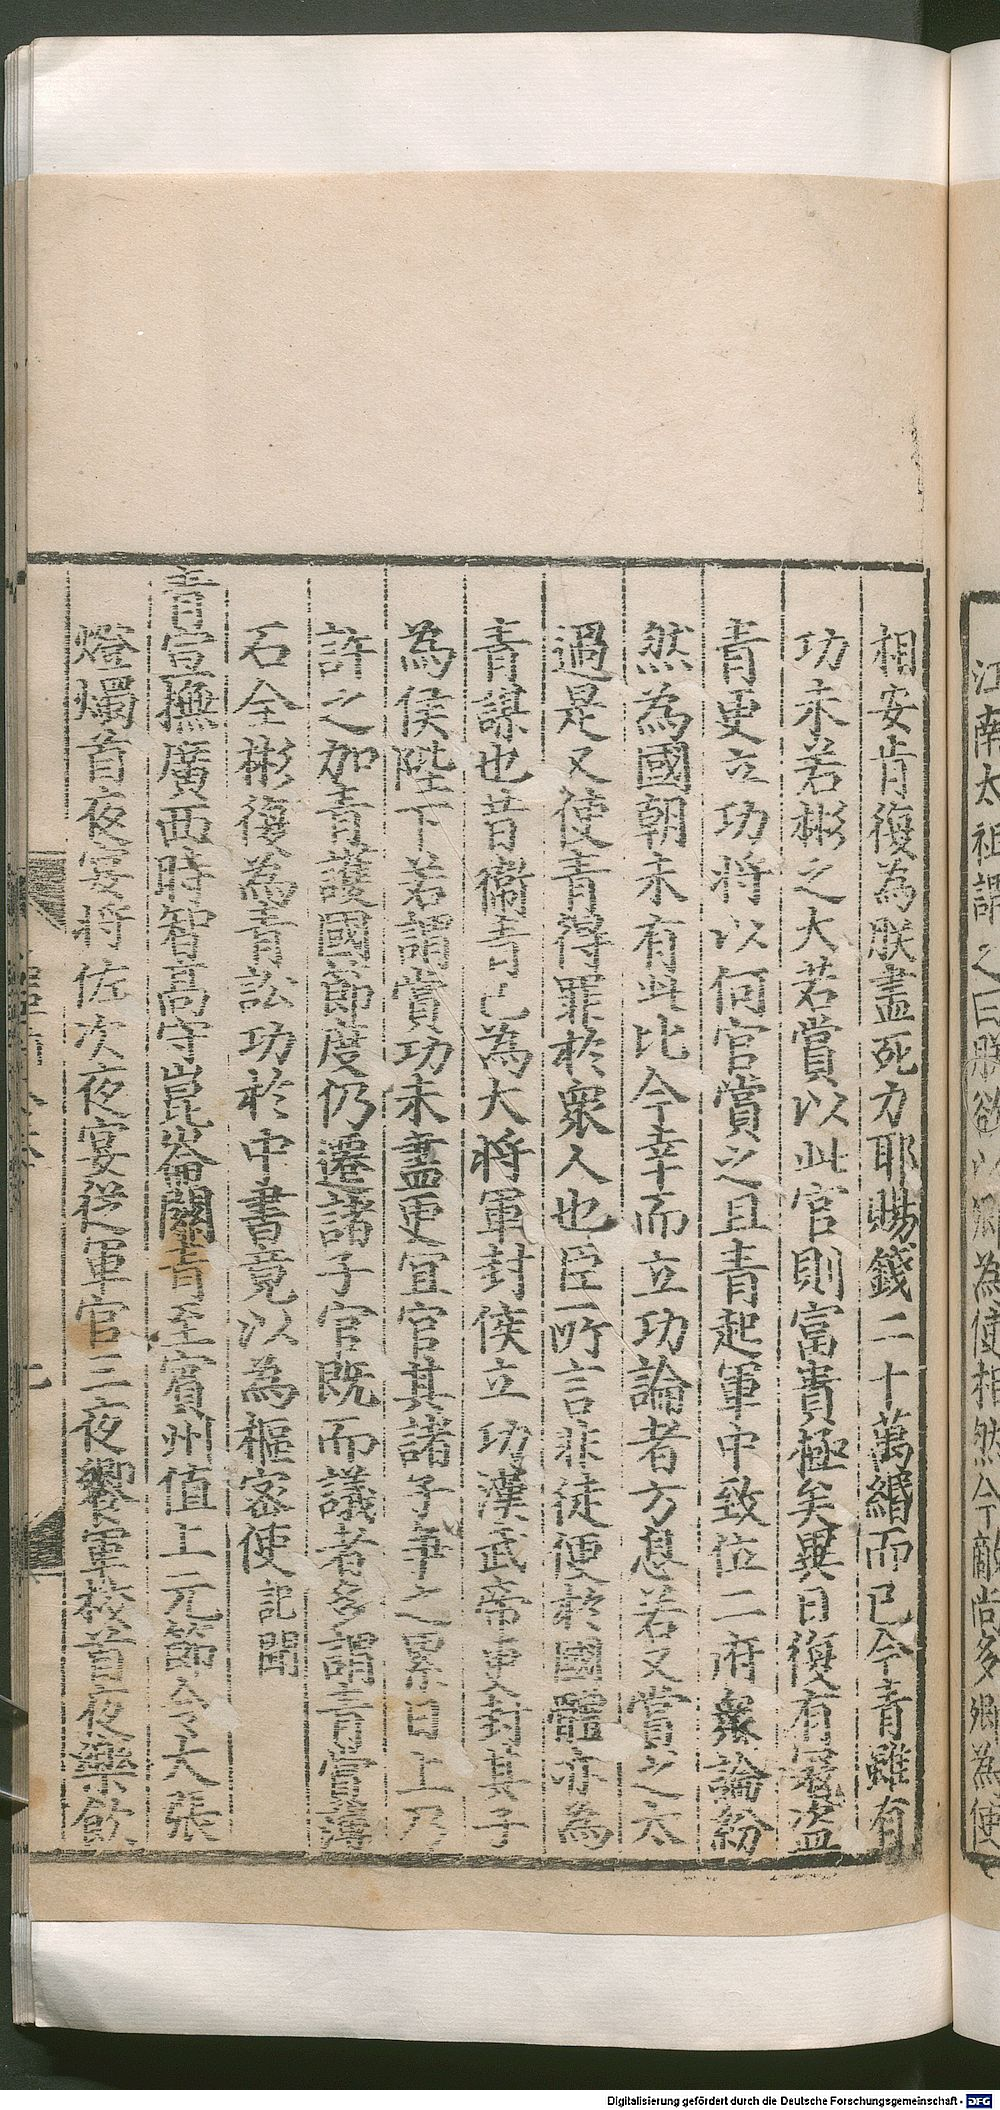 江南太祖謂之曰朕欲以卿為使相然今敵尚多卿為使
相安肯復為朕盡死力耶賜錢二十萬緡而已今青雖有
功未若彬之大若賞以此官則富貴極矣異日復有寇盜
青更立功將以何官賞之且青起軍中致位二府衆論紛
然為國朝未有此比今幸而立功論者方息若又賞之太
過是又使青得罪於衆人也臣所言非徒便於國體亦為
青謀也昔衛青已為大將軍封侯立功漢武帝更封其子
為侯陛下若謂賞功未盡更宜官其諸子爭之累日上乃
許之加青護國節度仍遷諸子官既而議者多謂青賞薄
石全彬復為青訟功於中書竟以為樞密使 記聞
青宣撫廣西時智高守崑崙關青至賓州值上元節令大張
燈燭首夜宴將佐次夜宴從軍官三夜饗軍校首夜樂飲
Digitalisierung gefördert durch die Deutsche Forschungsgemeinschaft - DFG